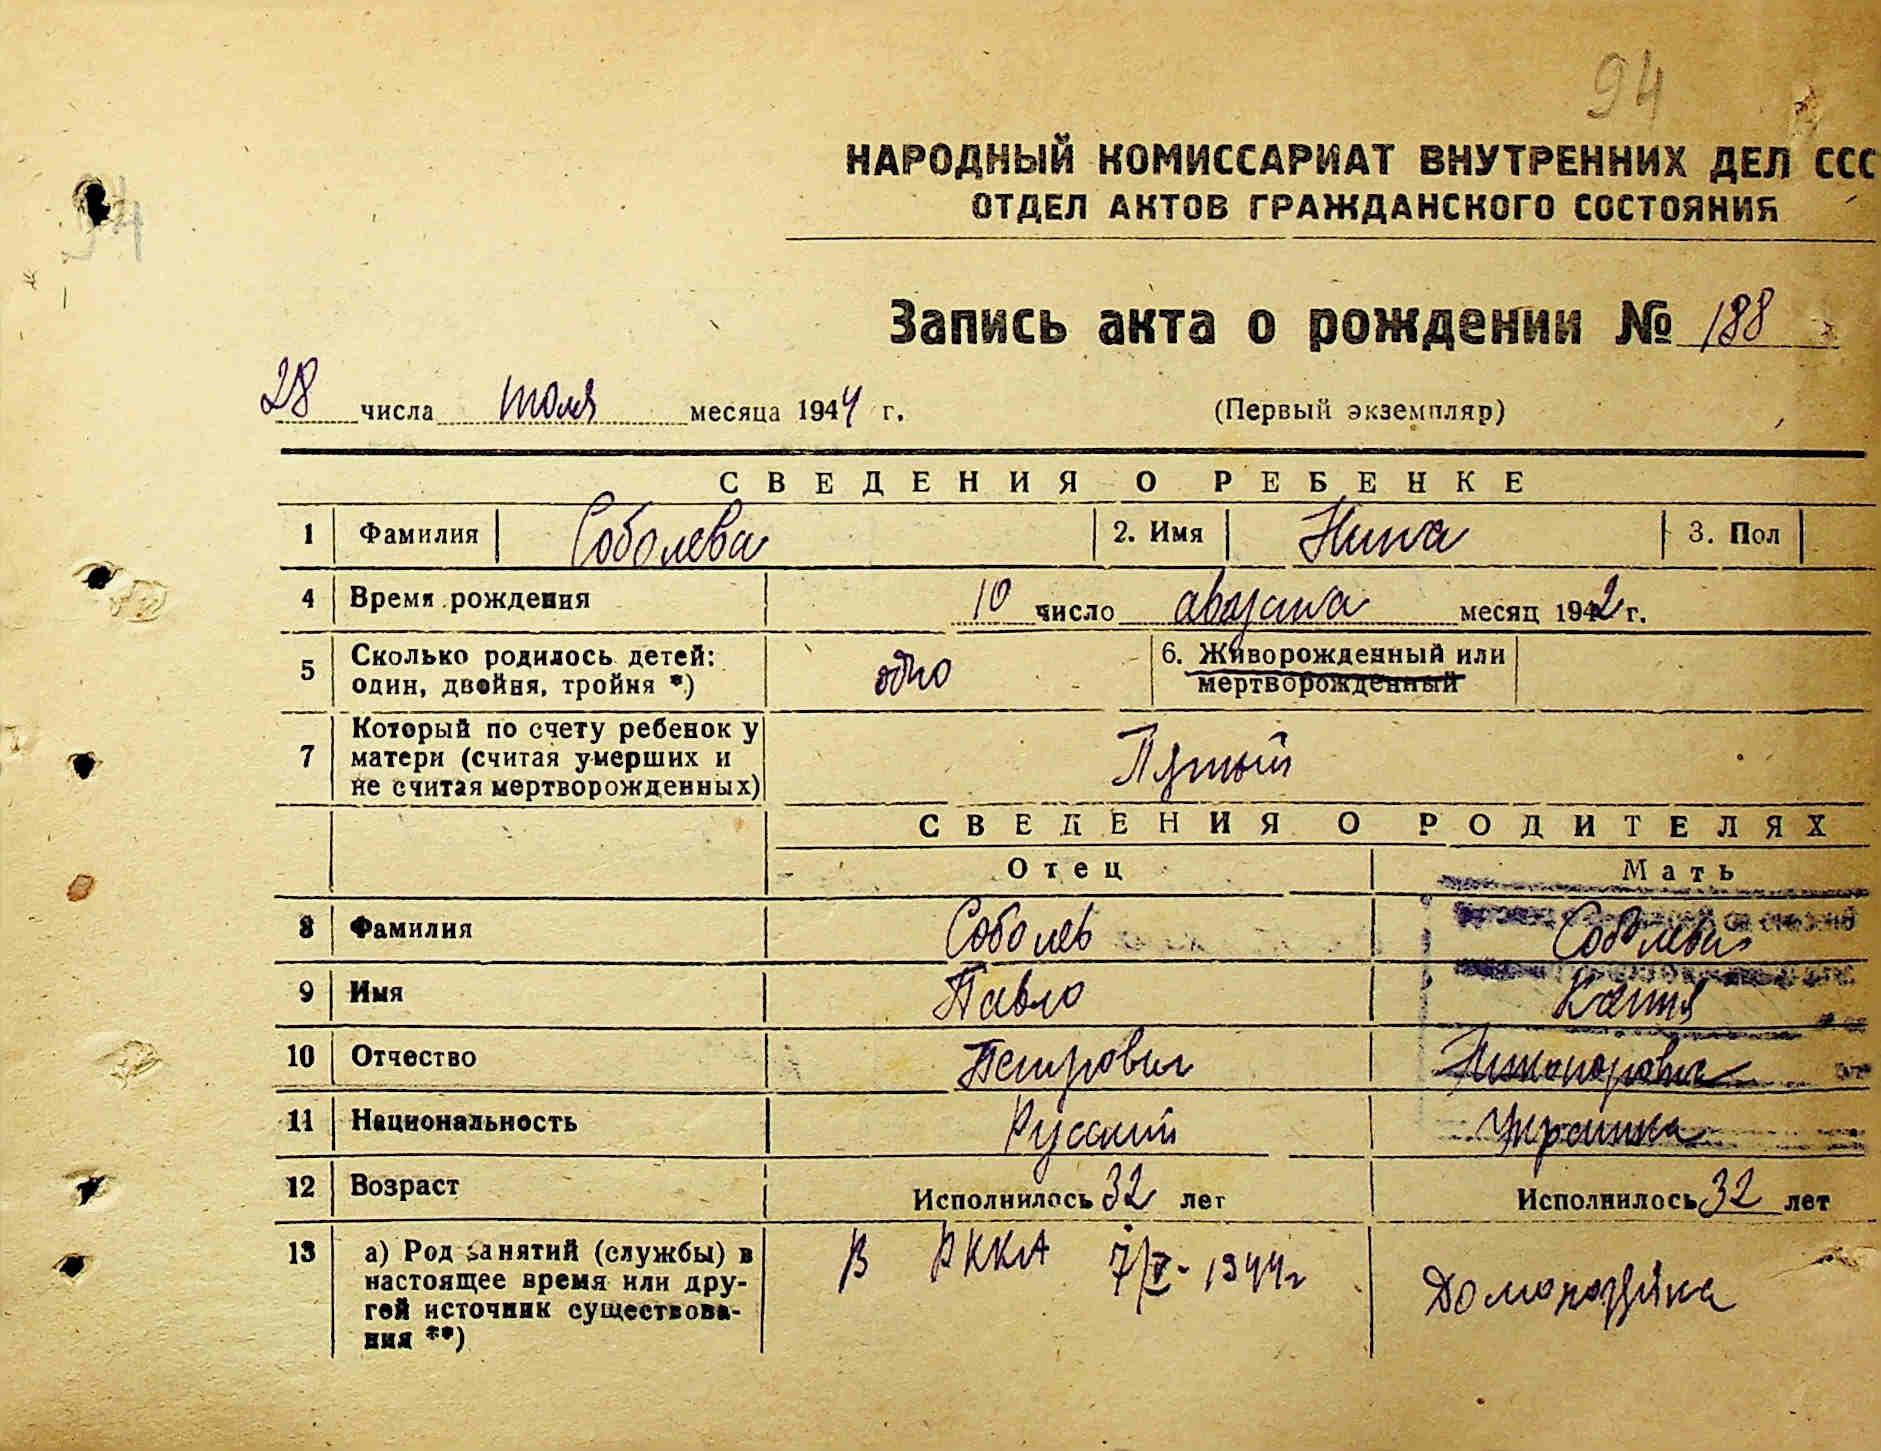 94
94
НАРОДНЫЙ КОМИССАРИАТ ВНУТРЕННИХ ДЕЛ ССС
ОТДЕЛ АКТОВ ГРАЖДАНСКОГО СОСТОЯНИЯ
Запись акта о рождении № 188
28 числа июля месяца 1944 г. (Первый экземпляр)
СВЕДЕНИЯ О РЕБЕНКЕ
1 Фамилия Соболева 2. Имя Нина 3. Пол
4 Время рождения 10 число августа месяц 1942 г.
5 Сколько родилось детей: один, двойня, тройня *) одно 6. Живорожденный или мертворожденный
7 Который по счету ребенок у матери (считая умерших и не считая мертворожденных) Пятый
СВЕДЕНИЯ О РОДИТЕЛЯХ
Отец Мать
8 Фамилия Соболев Соболева
9 Имя Павло Катя
10 Отчество Петрович
11 Национальность Русский Украинка
12 Возраст Исполнилось 32 лет Исполнилось 32 лет
13 а) Род занятий (службы) в настоящее время или другой источник существования **) В РККА 1944г Домохозяйка